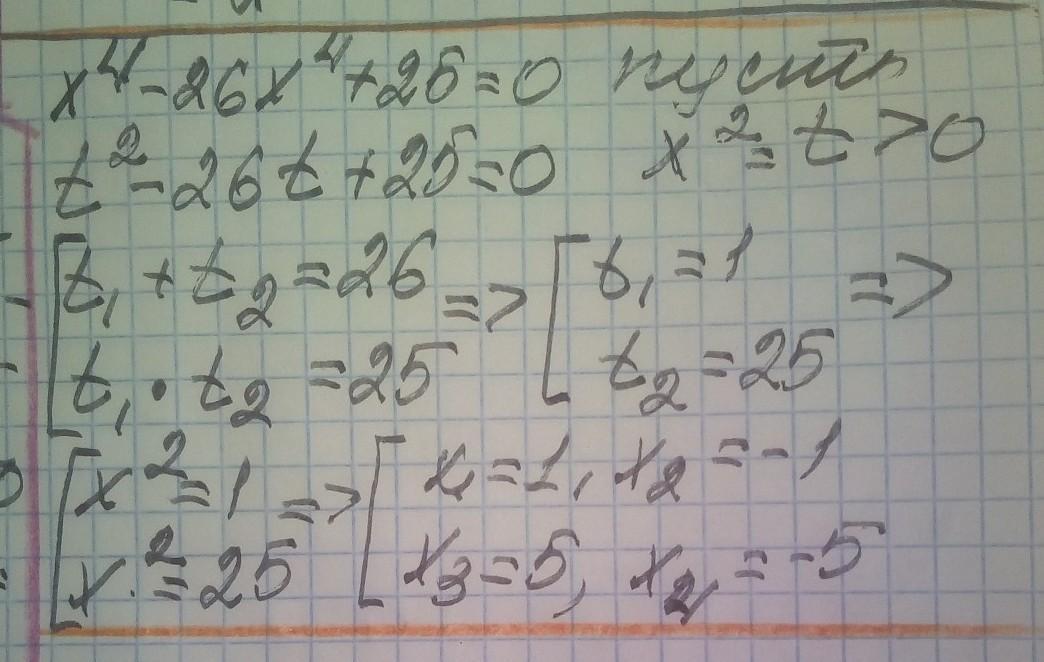 x⁴-26x⁴+25=0 пусть
t²-26t+25=0 x²=t>0
[t₁+t₂=26 => [t₁=1 =>
t₁·t₂=25 t₂=25
[x²=1 => [x₁=1, x₂=-1
x²=25 x₃=5, x₄=-5